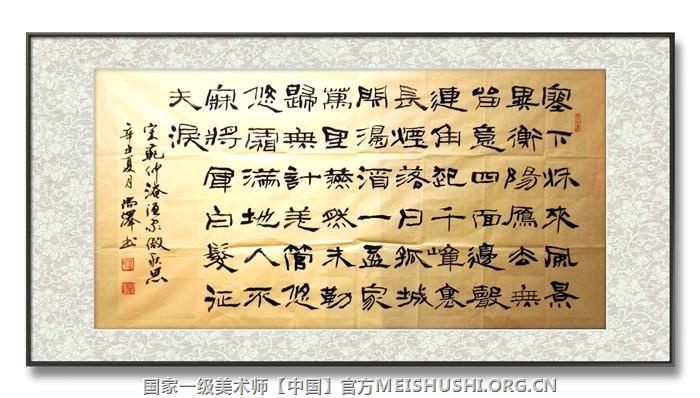 塞下秋來風景
異衡陽雁去無
留意四面邊聲
連角起千嶂裏
長煙落日孤城
閉濁酒一盃家
萬里燕然未勒
歸無計羌管悠
悠霜滿地人不
寐將軍白髮征
夫淚
宋範仲淹漁家傲秋思
辛丑夏月
国家一级美术师【中国】官方MEISHUSHI.ORG.CN